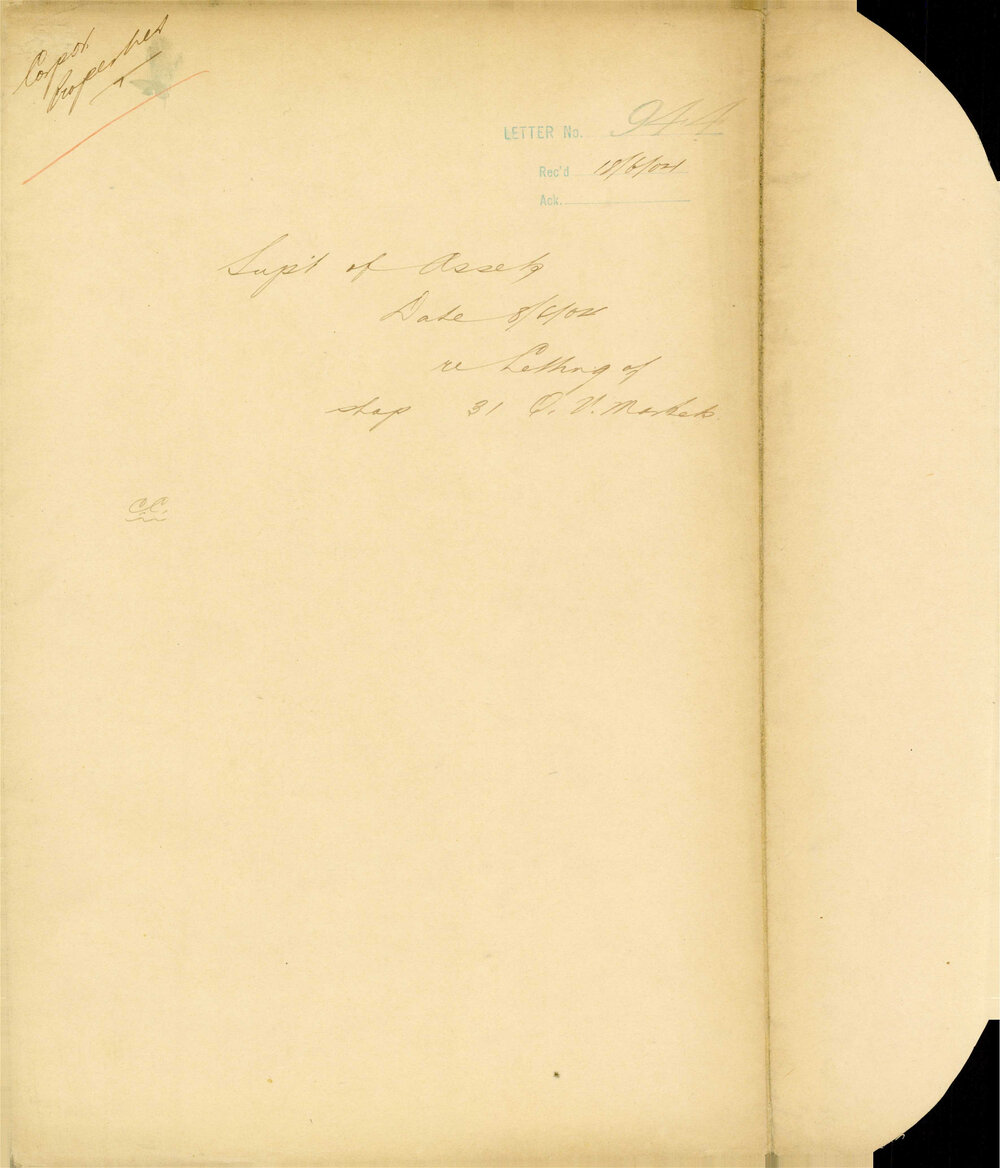 Corpor
Properties
LETTER No. 944
Rec'd 18/6/04
Ack.
Supt of Assets
Date 8/6/04
re Letting of
shop 31 Q. V. Markets
C.C.